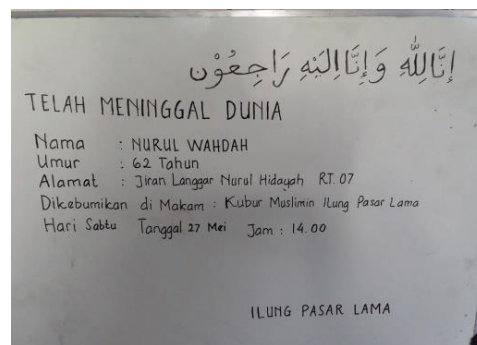 إِنَّالِلّٰهِ وَإِنَّااِلَيْهِ رَاجِعُوْن
TELAH MENINGGAL DUNIA
Nama : NURUL WAHDAH
Umur : 62 Tahun
Alamat : Jiran Langgar Nurul Hidayah RT. 07
Dikebumikan di Makam : Kubur Muslimin Ilung Pasar Lama
Hari Sabtu Tanggal 27 Mei Jam : 14.00
ILUNG PASAR LAMA